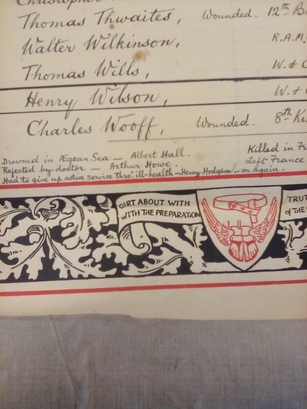 Christopher
Thomas Thwaites, Wounded. 12th B
Walter Wilkinson, R.A.
Thomas Wills, W. &
Henry Wilson, W. &
Charles Wooff, Wounded. 8th Ki
Drowned in Ægean Sea — Albert Hall. Killed in Fr
Rejected by doctor — Arthur Howe. Left France
Had to give up active service thro' ill-health — Henry Hodgson — on again.
GIRT ABOUT WITH
WITH THE PREPARATION
TRUT
of THE